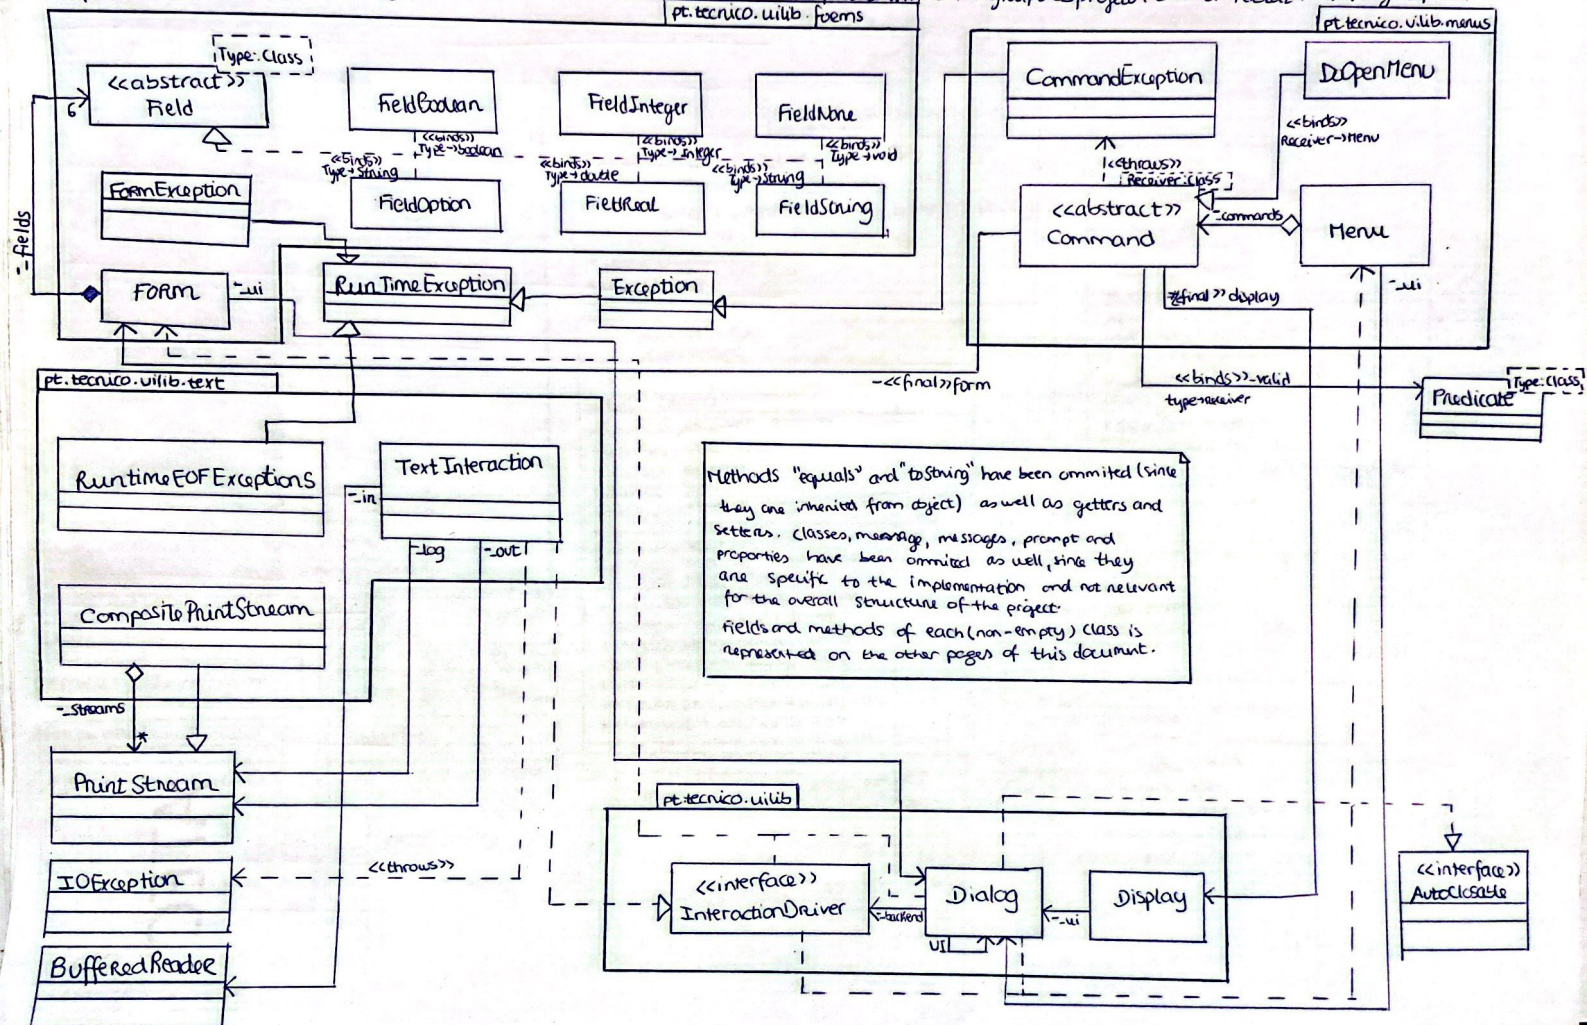 pt.tecnico.uilib.forms
pt.tecnico.uilib.menus
Type:Class
<<abstract>>
Field
6
FieldBoolean
FieldInteger
FieldNone
<<binds>>
Type→boolean
<<binds>>
Type→Integer
<<binds>>
Type→void
<<binds>>
Type→String
<<binds>>
Type→double
<<binds>>
Type→String
FieldOption
FieldReal
FieldString
FormException
-_fields
FORM
-_ui
RunTimeException
Exception
CommandException
DoOpenMenu
<<binds>>
Receiver→Menu
<<throws>>
Receiver:Class
<<abstract>>
Command
-_commands
Menu
-_ui
<<final>> display
-<<final>> form
<<binds>> -_valid
type→receiver
Predicate
Type:Class
pt.tecnico.uilib.text
RuntimeEOFExceptions
TextInteraction
-_in
-_log
-_out
CompositePrintStream
-_streams
*
PrintStream
IOException
<<throws>>
BufferedReader
Methods "equals" and "toString" have been ommited (since
they are inherited from object) as well as getters and
setters. classes, message, messages, prompt and
properties have been ommited as well, since they
are specific to the implementation and not relevant
for the overall structure of the project.
Fields and methods of each (non-empty) class is
represented on the other pages of this document.
pt.tecnico.uilib
<<interface>>
InteractionDriver
-_backend
Dialog
UI
-_ui
Display
<<interface>>
AutoClosable